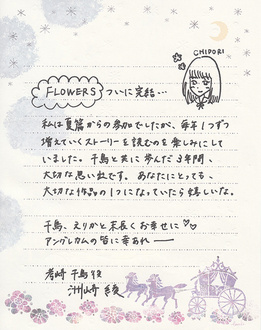 CHIDORI
FLOWERS ついに完結…
私は夏篇からの参加でしたが、毎年1つずつ
増えていくストーリーを読むのを楽しみにして
いました。千鳥と共に歩んだ3年間、
大切な思い出です。あなたにとっても、
大切な作品の1つになっていたら嬉しいな。
千鳥、えりかと末長くお幸せに♡♡
アングレカムの皆に幸あれ――
考崎 千鳥役
洲崎 綾